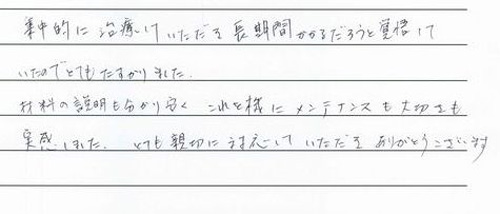 集中的に治療していただき長期間かかるだろうと覚悟して
いたのでとてもたすかりました。
材料の説明も分かり安く これを機にメンテナンスも大切さも
実感しました。 とても親切に対応していただき ありがとうございます